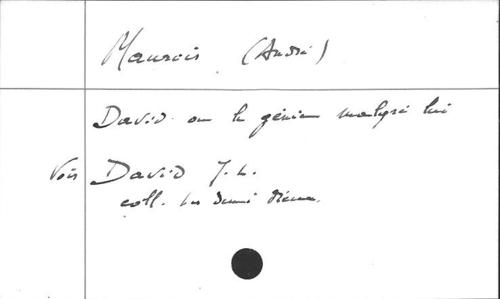 Maurois (André)
David ou le génie malgré lui
Voir David J. L.
coll. les demi dieux.